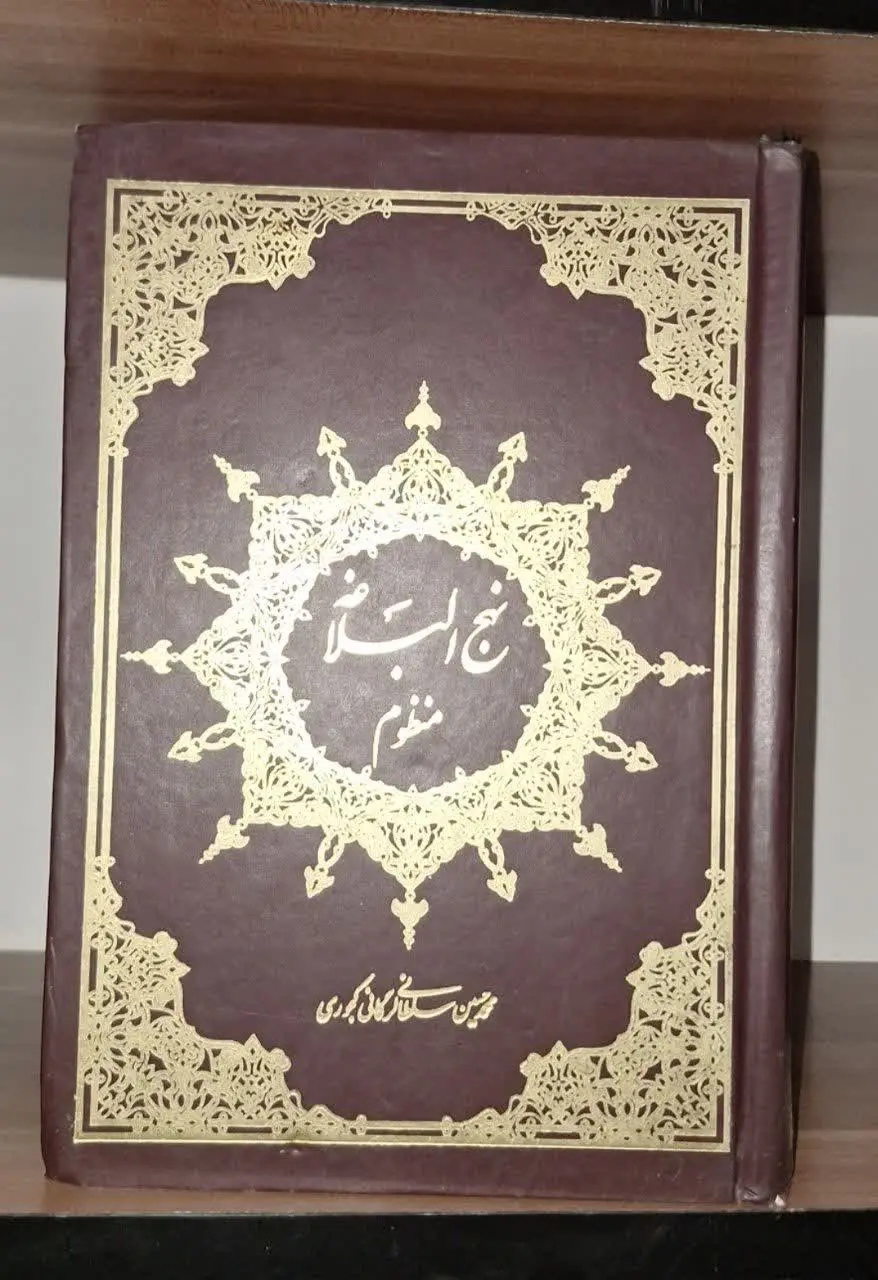 نهج البلاغه
منظوم
محمد حسین سلطانی کجوری